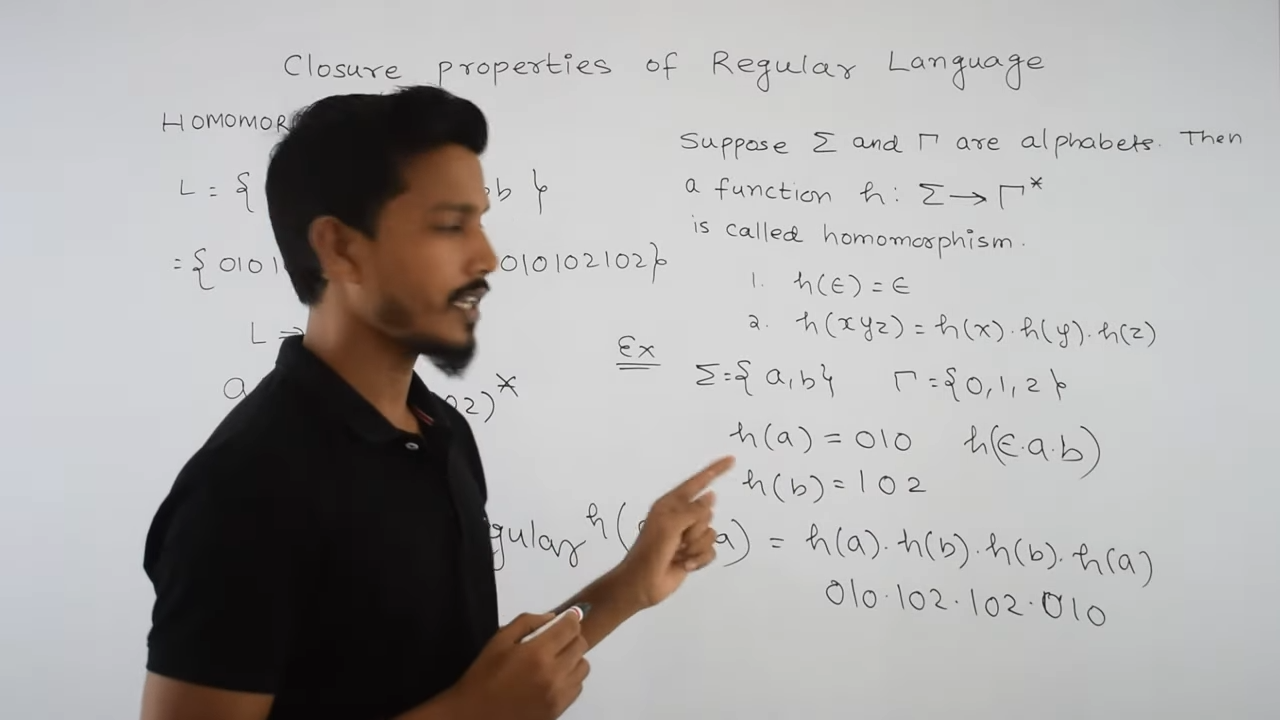 Closure properties of Regular Language
L = { b }
= { 0101 010102102}
L →
a 02)*
Suppose Σ and Γ are alphabets. Then
a function h: Σ → Γ*
is called homomorphism.
1. h(ϵ) = ϵ
2. h(xyz) = h(x) · h(y) · h(z)
Ex
Σ = { a, b } Γ = {0, 1, 2}
h(a) = 010 h(ϵ·a·b)
h(b) = 102
h( a) = h(a) · h(b) · h(b) · h(a)
010 · 102 · 102 · 010